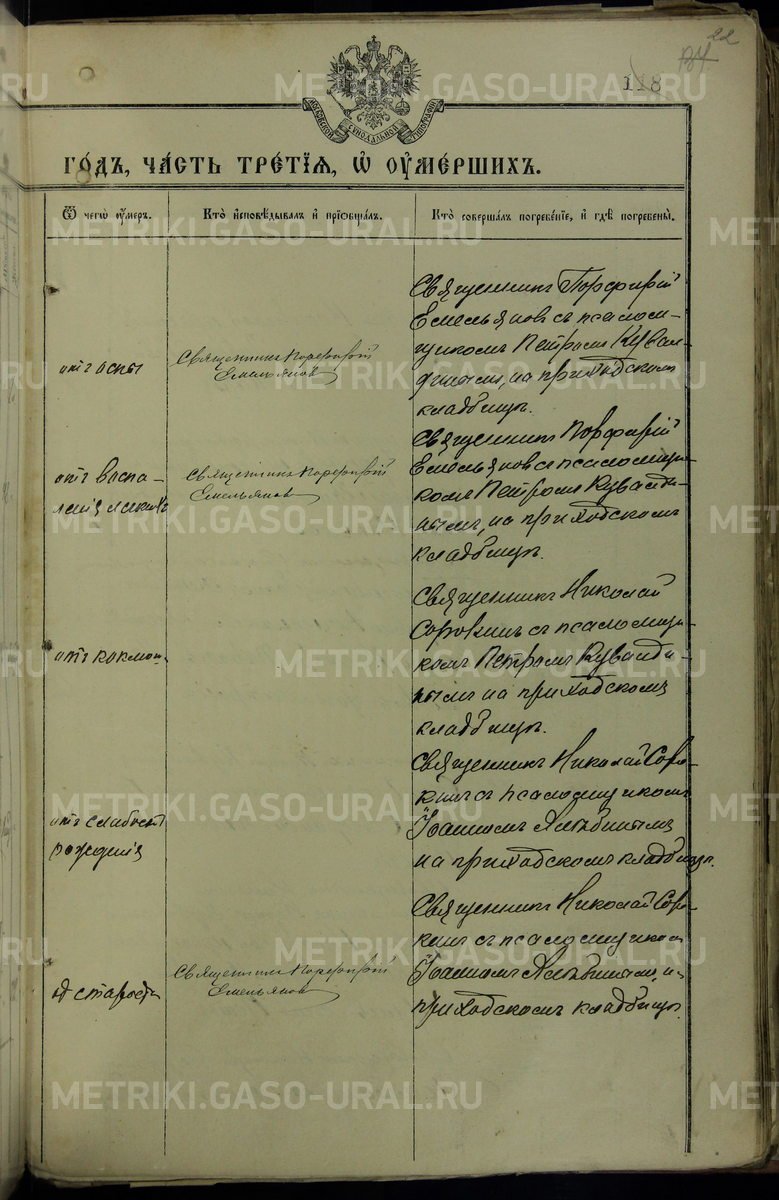 22
118
МОСКОВСКОЙ СУНОДАЛЬНОЙ ТИПОГРАФІИ
ГОДЪ, ЧАСТЬ ТРЕТІЯ, Ѡ ОУМЕРШИХЪ.
Ѿ чегѡ оумеръ.
Кто исповѣдывалъ и пріобщалъ.
Кто совершалъ погребеніе, и гдѣ погребены.
отъ оспы
Священникъ Порфирій
Емельяновъ
Священникъ Порфирій
Емельяновъ съ псалом-
щикомъ Петромъ Кувал-
динымъ, на приходскомъ
кладбищѣ.
отъ воспа-
ленія легкихъ
Священникъ Порфирій
Емельяновъ
Священникъ Порфирій
Емельяновъ съ псаломщи-
комъ Петромъ Кувалди-
нымъ, на приходскомъ
кладбищѣ.
отъ коклюш
Священникъ Николай
Сорокинъ съ псаломщи-
комъ Петромъ Кувалди-
нымъ на приходскомъ
кладбищѣ.
отъ слабости
рожденія
Священникъ Николай Соро-
кинъ съ псаломщикомъ
Іоанномъ
на приходскомъ кладбищѣ.
от старости
Священникъ Порфирій
Емельяновъ
Священникъ Николай Соро-
кинъ съ псаломщикомъ
Іоанномъ на
приходскомъ кладбищѣ.
METRIKI.GASO-URAL.RU